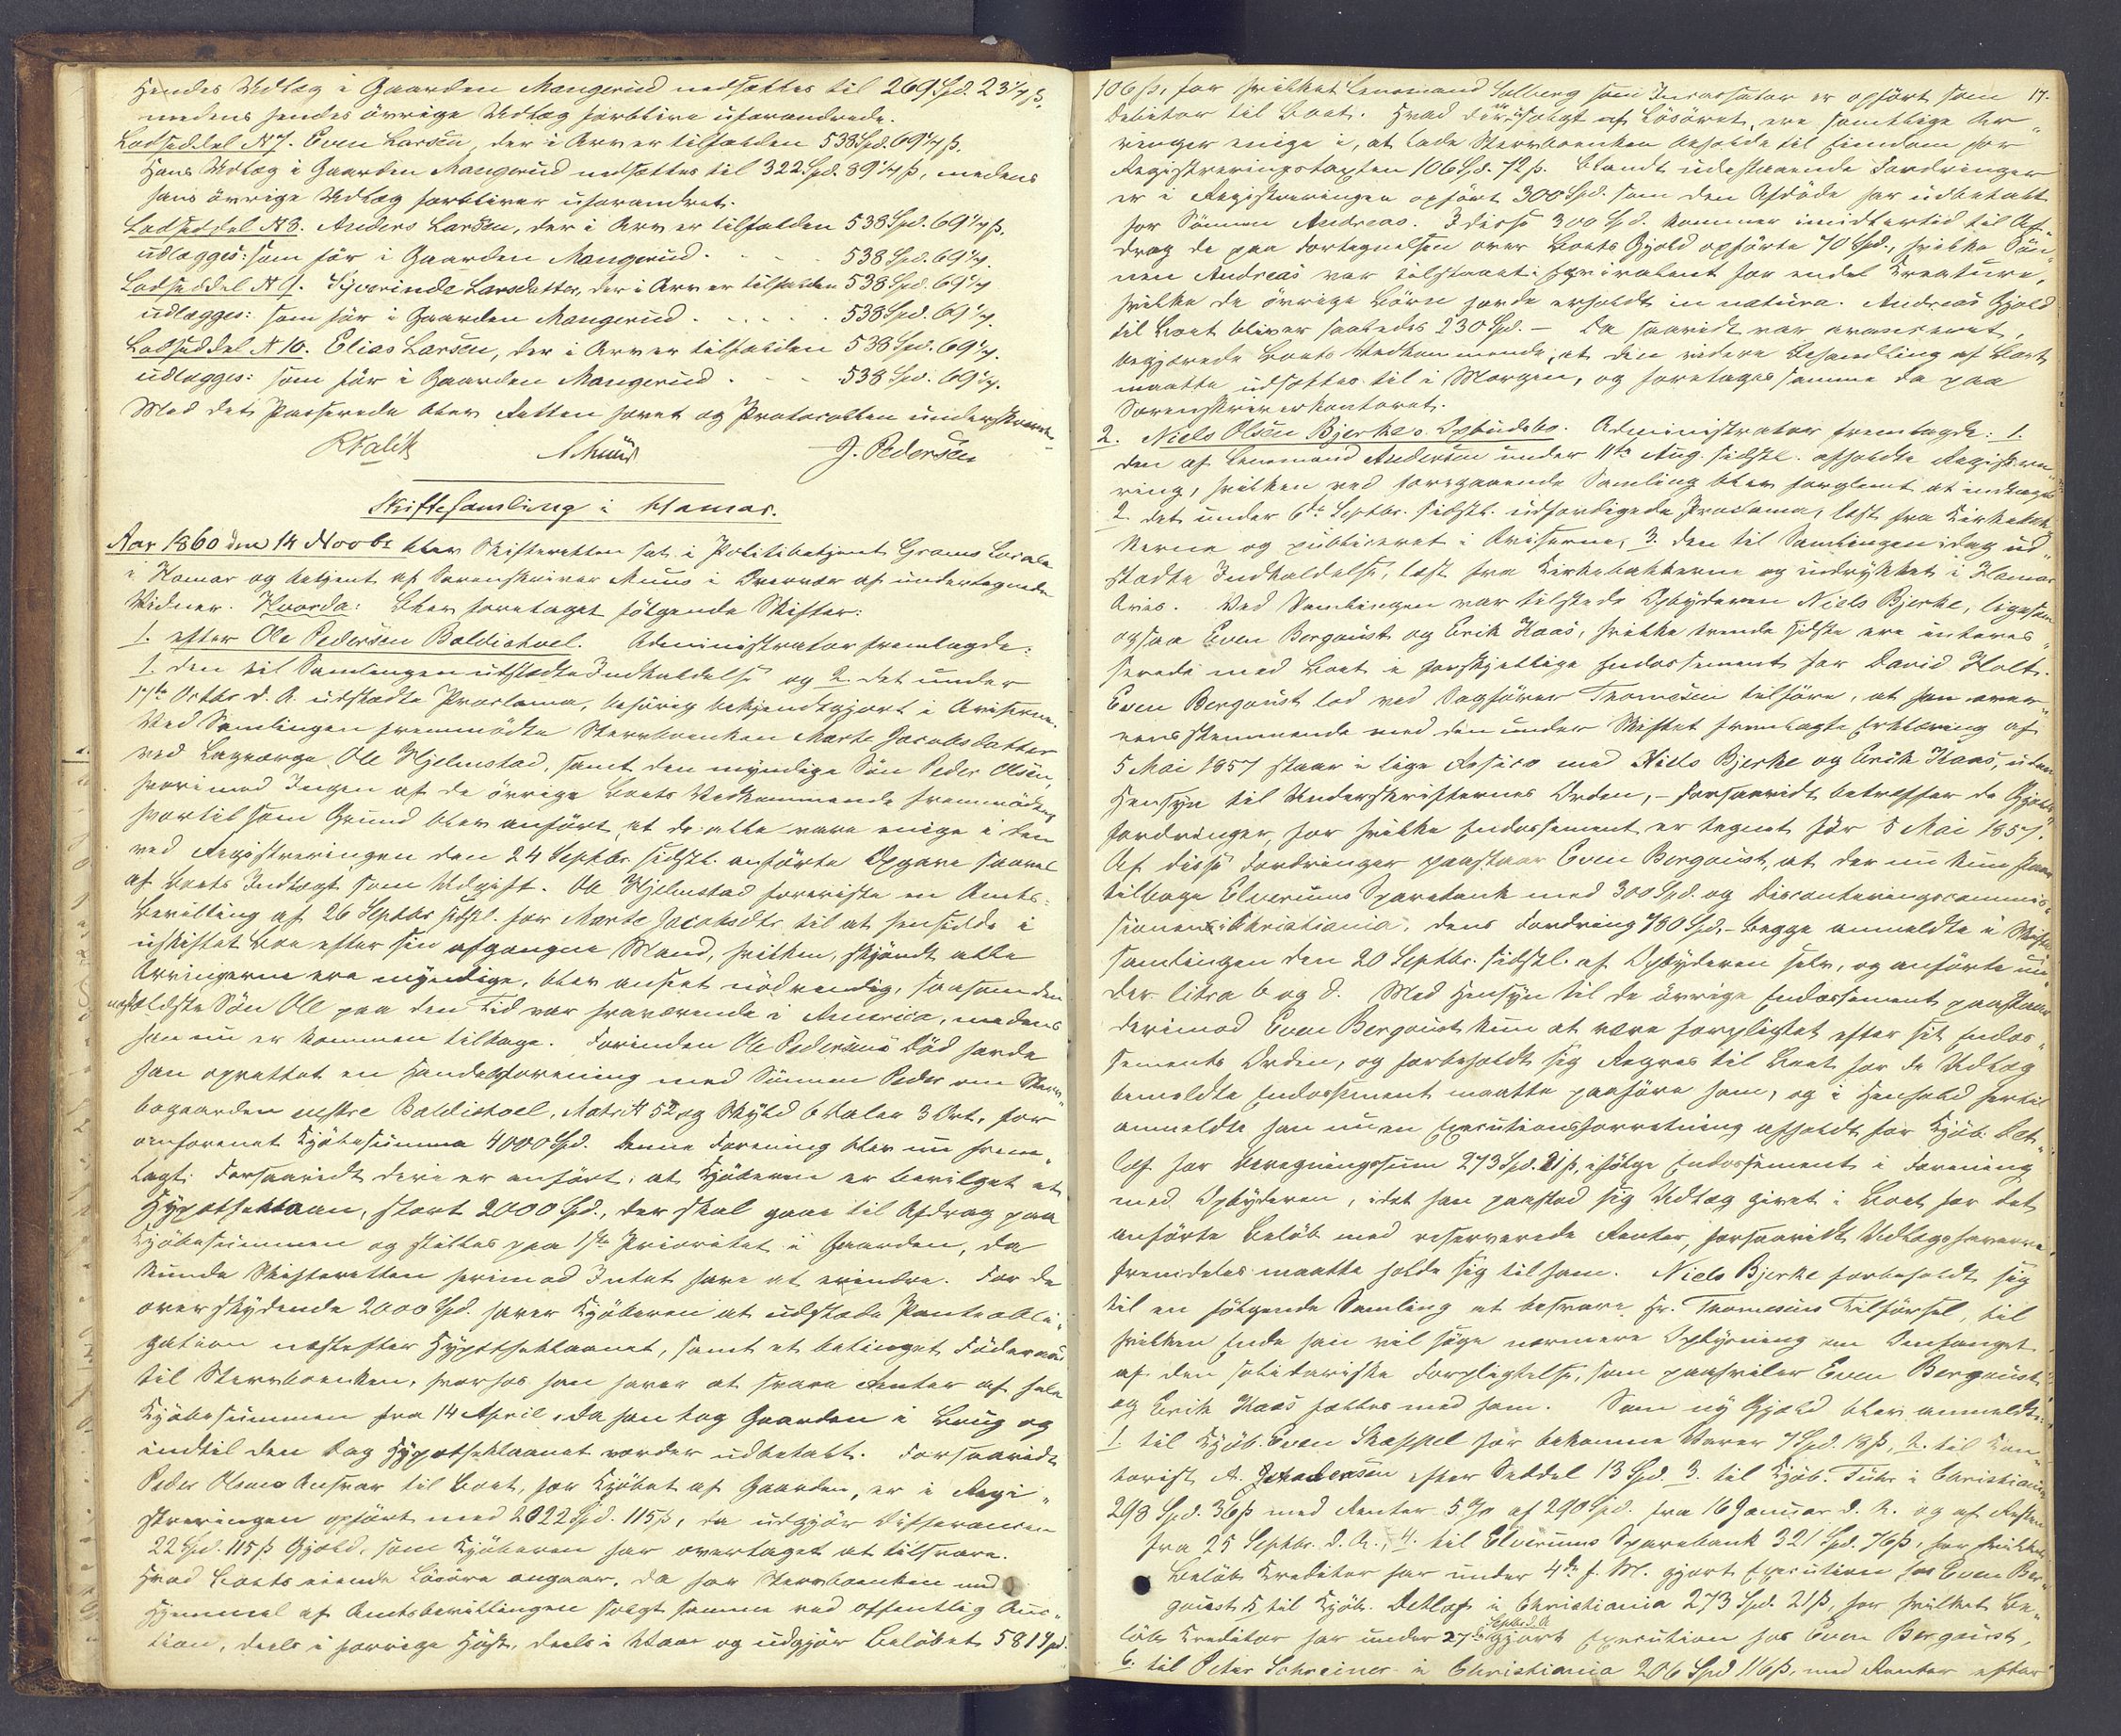 Hendes Udlæg i Gaarden Mangerud nedsættes til 269 Spd. 23 1/4 ß.
medens hendes övrige Udlæg forblive uforandrede.
Lodseddel N 7. Even Larsen, der i Arv er tilfalden 538 Spd. 69 1/4 ß.
Hans Udlæg i Gaarden Mangerud nedsættes til 322 Spd. 89 1/4 ß, medens
hans övrige Udlæg forbliver uforandret.
Lodseddel N 8. Anders Larsen, der i Arv er tilfalden 538 Spd. 69 1/4 ß.
udlægges: som för i Gaarden Mangerud . . . 538 Spd. 69 1/4.
Lodseddel N 9. Syverinde Larsdatter, der i Arv er tilfalden 538 Spd. 69 1/4
udlægges: som för i Gaarden Mangerud . . . . . 538 Spd. 69 1/4.
Lodseddel N 10. Elias Larsen, der i Arv er tilfalden 538 Spd. 69 1/4.
udlægges: som för i Gaarden Mangerud . . . 538 Spd. 69 1/4.
Med det Passerede blev Retten hævet og Protocollen underskrevet.
J. Pedersen
Skiftesamling i Hamar.
Aar 1860 den 14 Novbr blev Skifteretten sat i Politibetjent Grams Locale
i Hamar og betjent af Sorenskriver Muns i Overvær af undertegnede
Vidner. Hvorda: Blev foretaget fölgende Skifter:
1. efter Ole Pedersen Baldishoel. Administrator fremlagde:
1. den til Samlingen udstedte Indkaldelse og 2. det under
17de Octbr d. A. udstedte Proclama, behörig bekjendtgjort i Aviserne.
Ved Samlingen fremmödte Stervboenken Marte Jacobsdatter
ved Laugværge Ole Hjelmstad, samt den myndige Sön Peder Olsen,
hvorimod Ingen af de övrige Boets Vedkommende fremmödte,
hvortil som Grund blev anfört, at de alle vare enige i den
ved Registreringen den 24 Septbr. sidstl. anförte Opgave saavel
af Boets Indtægt som Udgift. Ole Hjelmstad foreviste en Amts-
Bevilling af 26 Septbr sidstl. for Marte Jacobsdtr. til at hensidde i
uskiftet Boe efter sin afgangne Mand, hvilken, skjöndt alle
Arvingerne ere myndige, blev anseet nödvendig, saasom den
næstældste Sön Ole paa den Tid var fraværende i America, medens
han nu er kommen tilbage. Forinden Ole Pedersens Död havde
han oprettet en Handelsforening med Sönnen Peder om Stervbo-
bogaarden vestre Baldishoel, Matr N 52 og Skyld 6 Daler 3 Ort, for
omforenet Kjöbesumma 4000 Spd. Denne Forening blev nu frem-
lagt. Forsaavidt deri er anfört, at Kjöberen er bevilget et
Hypotheklaan, stort 2000 Spd., der skal gaae til Afdrag paa
Kjöbesummen og stilles paa 1ste Prioritet i Gaarden, da
kunde Skifteretten herimod Intet have at erindre. For de
overskydende 2000 Spd. haver Kjöberen at udstede Panteobli-
gation næstefter Hypotheklaanet, samt et betinget Föderaad
til Stervboenken, hvorhos han haver at svare Renter af hele
Kjöbesummen fra 14 April, da han tog Gaarden i Brug og
indtil den Dag Hypotheklaanet vorder udbetalt. Forsaavidt
Peder Olsens Ansvar til Boet, for Kjöbet af Gaarden, er i Regi-
streringen opfört med 2022 Spd. 115 ß, da udgjör Differancen
22 Spd. 115 ß Gjæld, som Kjöberen har overtaget at tilsvare.
Hvad Boets eiende Lösöre angaar, da har Stervboenken med
Hjemmel af Amtsbevillingen solgt samme ved offentlig Auc-
tion, deels i forrige Höst, deels i Vaar og udgjör Belöbet 581 Spd.
17.
106 ß, for hvilket Lensmand Solberg som Incassator er opfört som
Debitor til Boet. Hvad der er usolgt af Lösöret, ere samtlige Ar-
vinger enige i, at lade Stervboenken beholde til Eiendom for
Registreringstaxten 106 Spd. 72 ß. Blandt udestaaende Fordringer
er i Registreringen opfört 300 Spd. som den Afdöde har udbetalt
for Sönnen Andreas. I disse 300 Spd. kommer imidlertid til Af-
drag de paa Fortegnelsen over Boets Gjæld opförte 70 Spd., hvilke Sön-
nen Andreas var tilstaaet i Æqvivalent for endel Creature,
hvilke de övrige Börn havde erholdt in natura. Andreas Gjæld
til Boet bliver saaledes 230 Spd. – Da saavidt var avanceret,
begjerede Boets Vedkommende, at den videre Behandling af Boet
maatte udsættes til i Morgen, og foretages samme da paa
Sorenskriverkontoret.
2. Niels Olsen Bjerkes Opbudsbo. Administrator fremlagde: 1.
den af Lensmand Andersen under 11te Aug. sidstl. afholdte Registre-
ring, hvilken ved foregaaende Samling blev forglemt at indtages
2. det under 6te Septbr. sidstl. udfærdigede Proclama, læst fra Kirkebak-
kerne og publiceret i Aviserne, 3. den til Samlingen idag ud-
stedte Indkaldelse, læst fra Kirkebakkerne og indrykket i Hamar
Avis. Ved Samlingen var tilstede Opbyderen Niels Bjerke, ligesom
ogsaa Even Bergqust og Erik Haas, hvilke trende sidste ere interes-
serede med Boet i forskjellige Endossement for David Holt.
Even Bergqust lod ved Sagförer Thomesen tilföre, at han over-
eensstemmende med den under Skiftet fremlagte Erklæring af
5 Mai 1857 staar i lige Risico med Niels Bjerke og Erik Haas, uden
Hensyn til Underskrifternes Orden, – forsaavidt betræffer de Gjælds-
fordringer, for hvilke Endossement er tegnet för 5 Mai 1857.
Af disse Fordringer paastaar Even Bergqust, at der nu kun staar
tilbage Elverums Sparebank med 300 Spd. og Disconteringscommis-
sionen i Christiania, dens Fordring 780 Spd. – begge anmeldte i Skifte-
samlingen den 20 Septbr. sidstl. af Opbyderen selv, og anförte un-
der litra b og d. Med Hensyn til de övrige Endossement paastaar
derimod Even Bergqust kun at være forpligtet efter sit Endos-
sements Orden, og forbeholdt sig Regres til Boet for de Udlæg
bemeldte Endossement maatte paaföre ham, og i Henhold hertil
anmeldte han nu en Executionsforretning afholdt for Kjöb. Det-
lef for Beregningssum 273 Spd. 21 ß, ifölge Endossement i Forening
med Opbyderen, idet han paastod sig Udlæg givet i Boet for det
anförte Belöb med reserverede Renter, forsaavidt Udlægshaverne
fremdeles maatte holde sig til ham. Niels Bjerke forbeholdt sig
til en fölgende Samling at besvare Hr. Thomesens Tilförsel, til
hvilken Ende han vil söge nærmere Oplysning om Omfanget
af den solidariske Forpligtelse, som paahviler Even Bergqust
og Erik Haas fælles med ham. Som ny Gjæld blev anmeldt:
1. til Kjöb. Even Skappel for bekomne Varer 7 Spd. 18 ß, 2. til Kon-
torist A. Gundersen efter Seddel 13 Spd. 3. til Kjöb. Führ i Christiania
298 Spd. 36 ß med Renter 5 % af 290 Spd. fra 16 Januar d. A. og af Resten
fra 25 Septbr. d. A., 4. til Elverums Sparebank 321 Spd. 76 ß, for hvilket
Belöb Creditor har under 4de f. M. gjort Execution hos Even Berg-
qust, 5. til Kjöb. Detlef i Christiania 273 Spd. 21 ß, for hvilket Be-
löb Creditor har under 27de Septbr. d. A. gjort Execution hos Even Bergqust,
6. til Peter Schreiner i Christiania 206 Spd 116 ß, med Renter efter